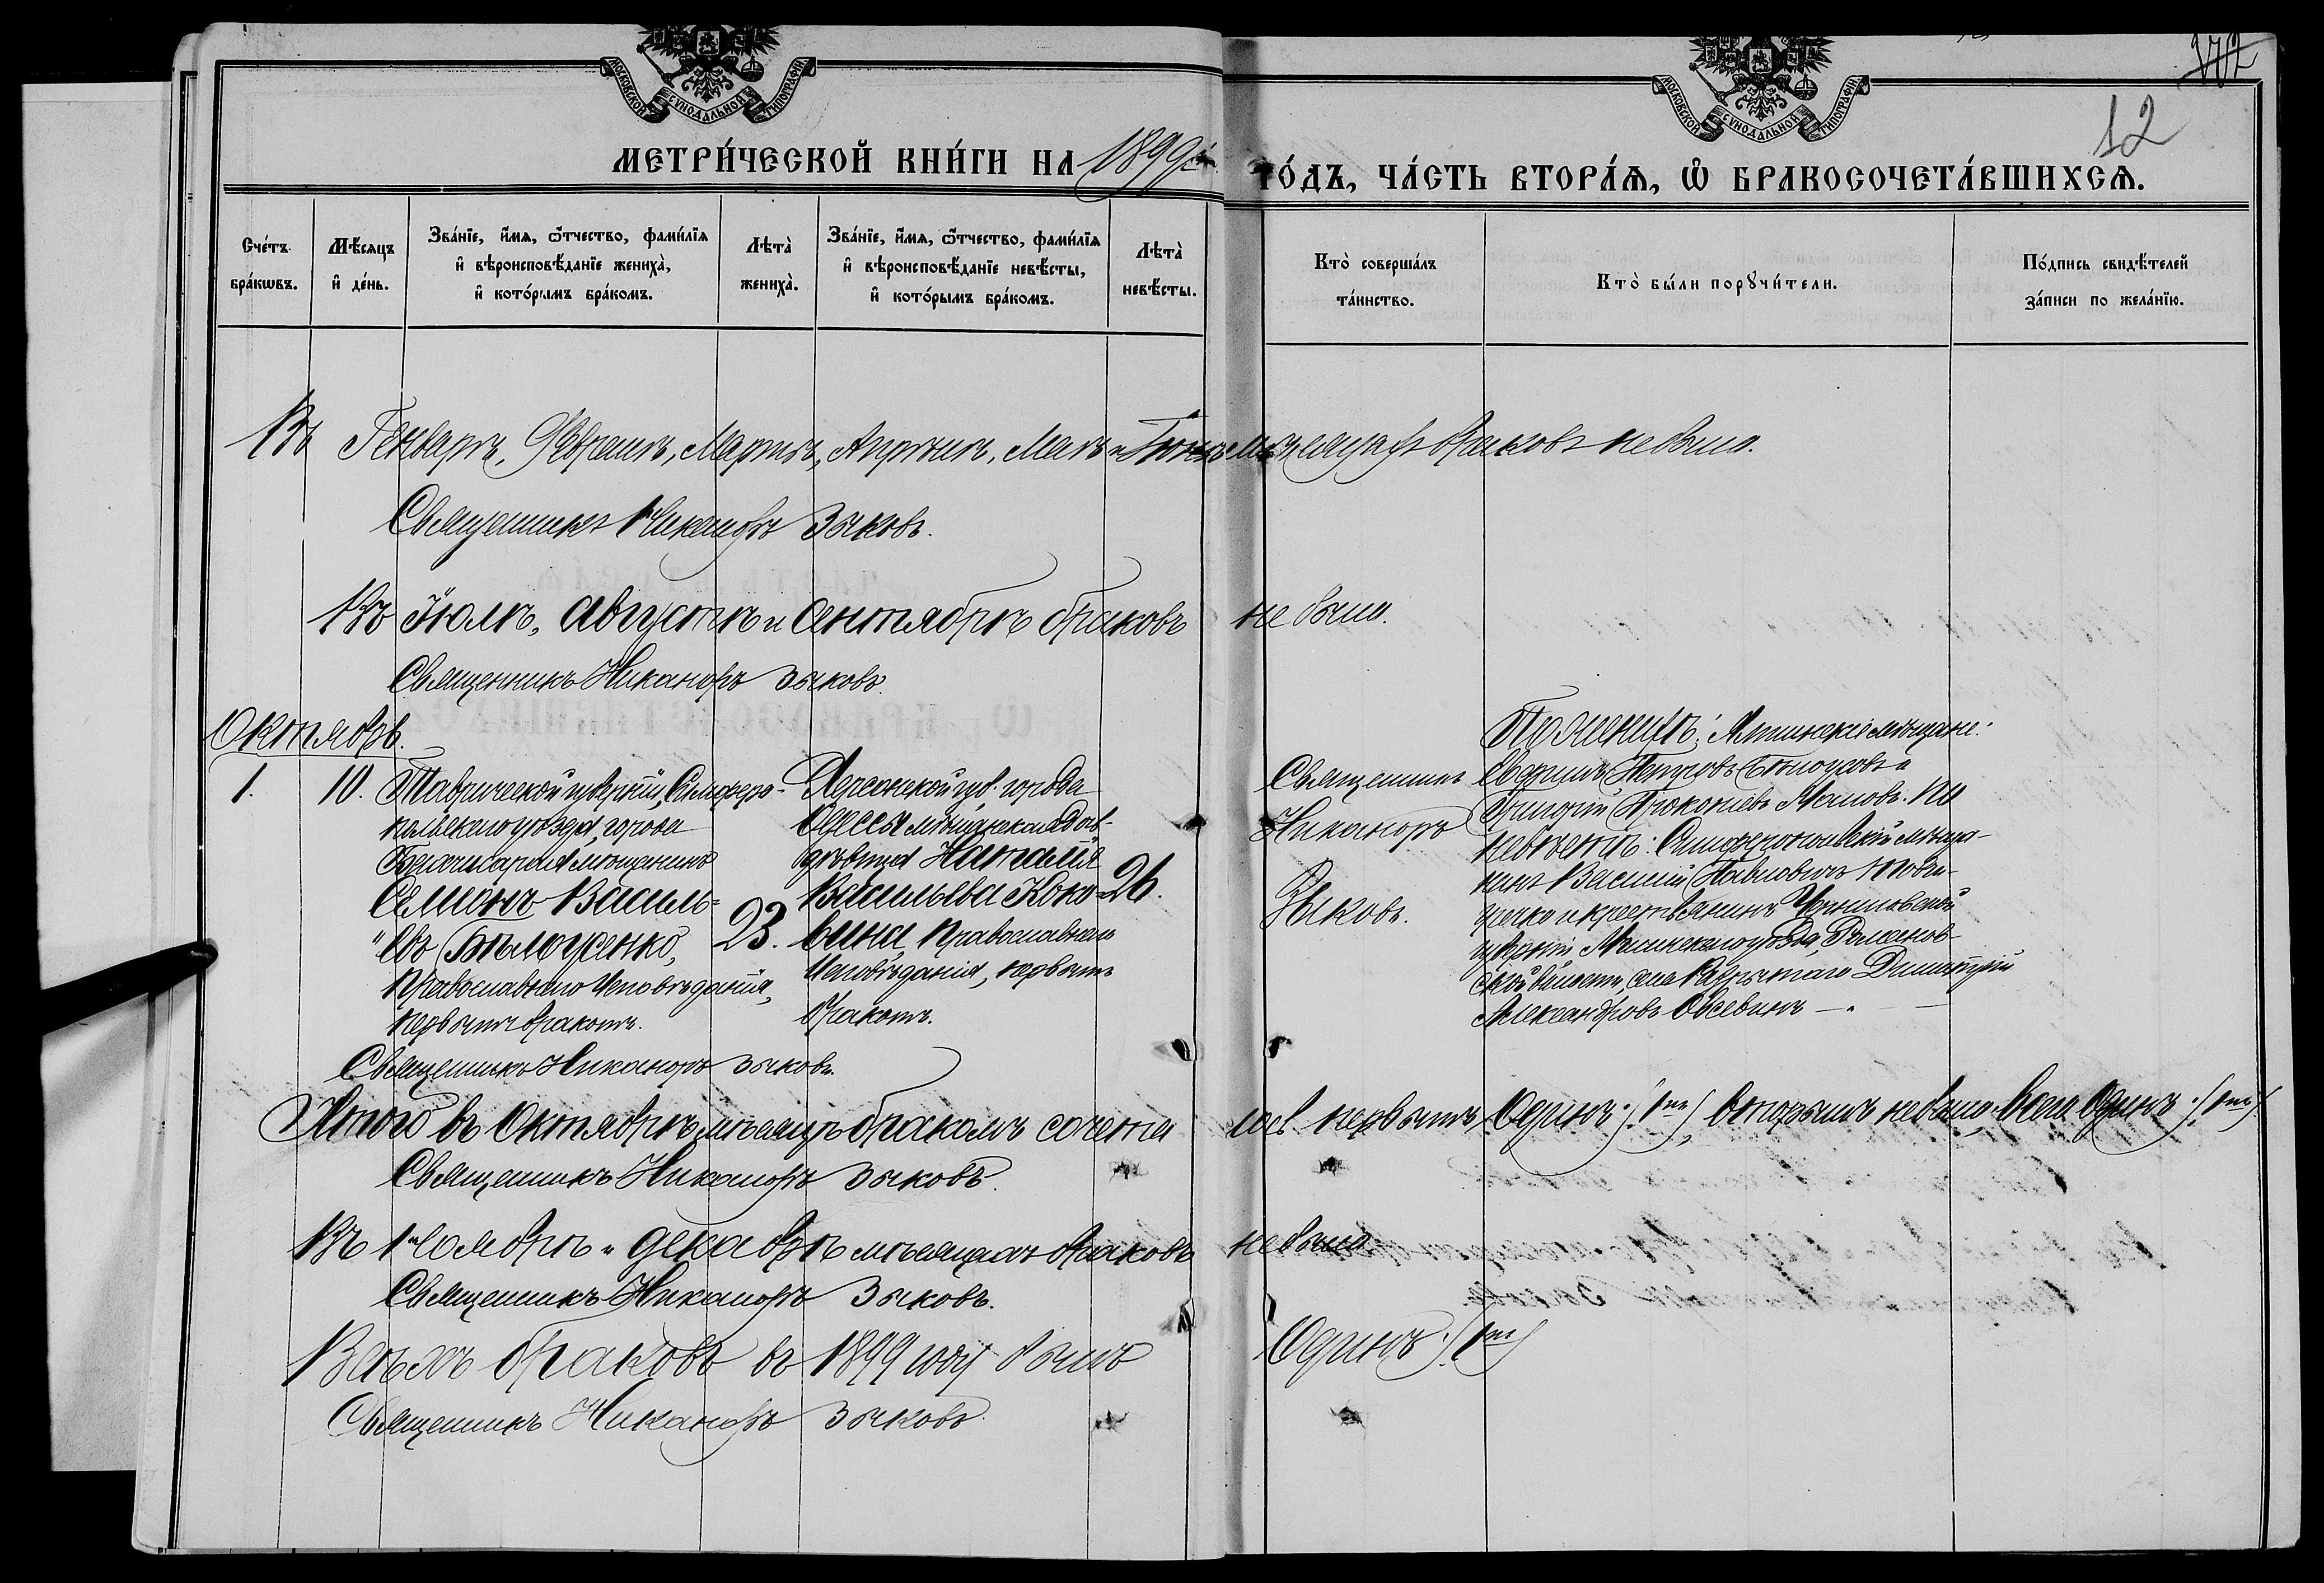 МОСКОВСКОЙ СѴНОДАЛЬНОЙ ТИПОГРАФІИ
МОСКОВСКОЙ СѴНОДАЛЬНОЙ ТИПОГРАФІИ
102
12
МЕТРИ́ЧЕСКОЙ КНИ́ГИ НА 1899й ГО́ДЪ, ЧА́СТЬ ВТОРА́Ѧ, Ѿ БРАКОСОЧЕТА́ВШИХСѦ.
Сче́тъ бра́кѡвъ.
Мѣ́сяцъ и҆ де́нь.
Зва́нїе, и҆́мѧ, ѻ҆́тчество, фами́лїѧ и҆ вѣроисповѣ́данїе жениха̀, и҆ кото́рымъ бра́комъ.
Лѣта̀ жениха̀.
Зва́нїе, и҆́мѧ, ѻ҆́тчество, фами́лїѧ и҆ вѣроисповѣ́данїе невѣ́сты, и҆ кото́рымъ бра́комъ.
Лѣта̀ невѣ́сты.
Кто̀ соверша́лъ та́инство.
Кто̀ бы́ли порꙋчи́тели.
По́дпись свидѣ́телей за́писи по жела́нїю.
Въ Генварѣ, Февралѣ, Мартѣ, Апрѣлѣ, Маѣ и Іюнѣ мѣсяцахъ браковъ не было.
Священникъ Никаноръ Зыковъ.
Въ Іюлѣ, Августѣ и Сентябрѣ браковъ не было.
Священникъ Никаноръ Зыковъ.
Октябрь.
1.
10.
Таврической губерніи, Симферо-
польскаго уѣзда, города
Бахчисарая мѣщанинъ
Семіонъ Василь-
евъ Бѣлоусенко,
Православнаго Исповѣданія,
первымъ бракомъ.
23.
Херсонской губ. города
Одессы мѣщанская
Наталія
Васильева Коко-
вина, Православнаго
Исповѣданія, первымъ
бракомъ.
26.
Священникъ
Никаноръ
Зыковъ.
По женихѣ: Ялтинскіе мѣщане:
Евфимъ Петровъ Бѣлоусовъ и
Григорій Прокопіевъ Маловъ. По
невѣстѣ: Симферопольскій мѣща-
нинъ Василій Павловичъ
и крестьянинъ Черниговской
губерніи, уѣзда, Романов-
ской волости, села Димитрій
Александровъ Овсевинъ —
Священникъ Никаноръ Зыковъ.
Итого въ Октябрѣ мѣсяцѣ бракомъ сочета лось первымъ Одинъ (1), вторымъ не было, всего Одинъ (1)
Священникъ Никаноръ Зыковъ.
Въ Ноябрѣ и Декабрѣ мѣсяцахъ браковъ не было.
Священникъ Никаноръ Зыковъ.
Всѣхъ браковъ въ 1899 году былъ Одинъ (1)
Священникъ Никаноръ Зыковъ.